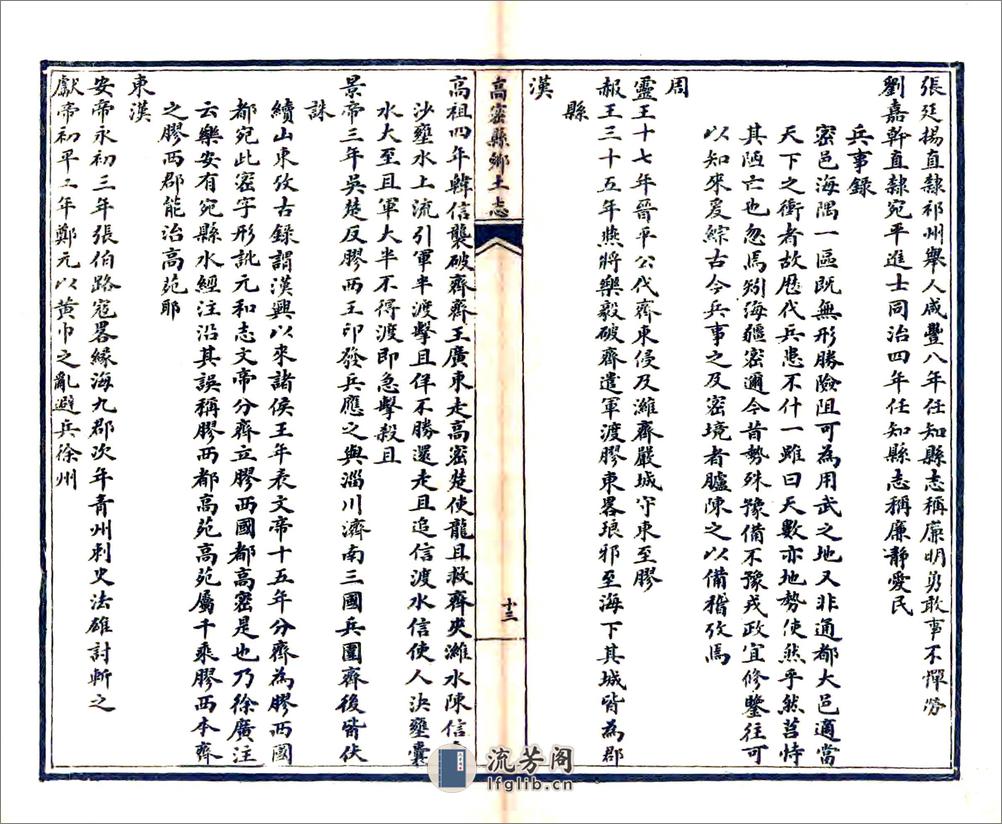 張廷揚直隸祁州舉人咸豐八年任知縣志稱廉明勇敢事不憚勞
劉嘉幹直隸宛平進士同治四年任知縣志稱廉靜愛民
兵事錄
密邑海隅一區既無形勝險阻可為用武之地又非通都大邑適當
天下之衝者故歷代兵患不什一雖曰天數亦地勢使然乎然莒恃
其陋亡也忽焉矧海疆密邇今昔勢殊豫備不豫戎政宜修鑒往可
以知來爰綜古今兵事之及密境者臚陳之以備稽攷焉
周
靈王十七年晉平公伐齊東侵及濰齊嚴城守東至膠
赧王三十五年燕將樂毅破齊遣軍渡膠東畧琅邪至海下其城皆為郡
縣
漢
高密縣鄉土志
十三
高祖四年韓信襲破齊齊王廣東走高密楚使龍且救齊夾濰水陳信
沙壅水上流引軍半渡擊且佯不勝還走且追信渡水信使人決壅囊
水大至且軍大半不得渡即急擊殺且
景帝三年吳楚反膠西王卬發兵應之與淄川濟南三國兵圍齊後皆伏
誅
續山東攷古錄謂漢興以來諸侯王年表文帝十五年分齊為膠西國
都宛此密字形訛元和志文帝分齊立膠西國都高密是也乃徐廣注
云樂安有宛縣水經注沿其誤稱膠西都高苑高苑屬千乘膠西本齊
之膠西郡能治高苑耶
東漢
安帝永初三年張伯路寇畧緣海九郡次年青州刺史法雄討斬之
獻帝初平二年鄭元以黃巾之亂避兵徐州
流芳阁
lfglib.cn